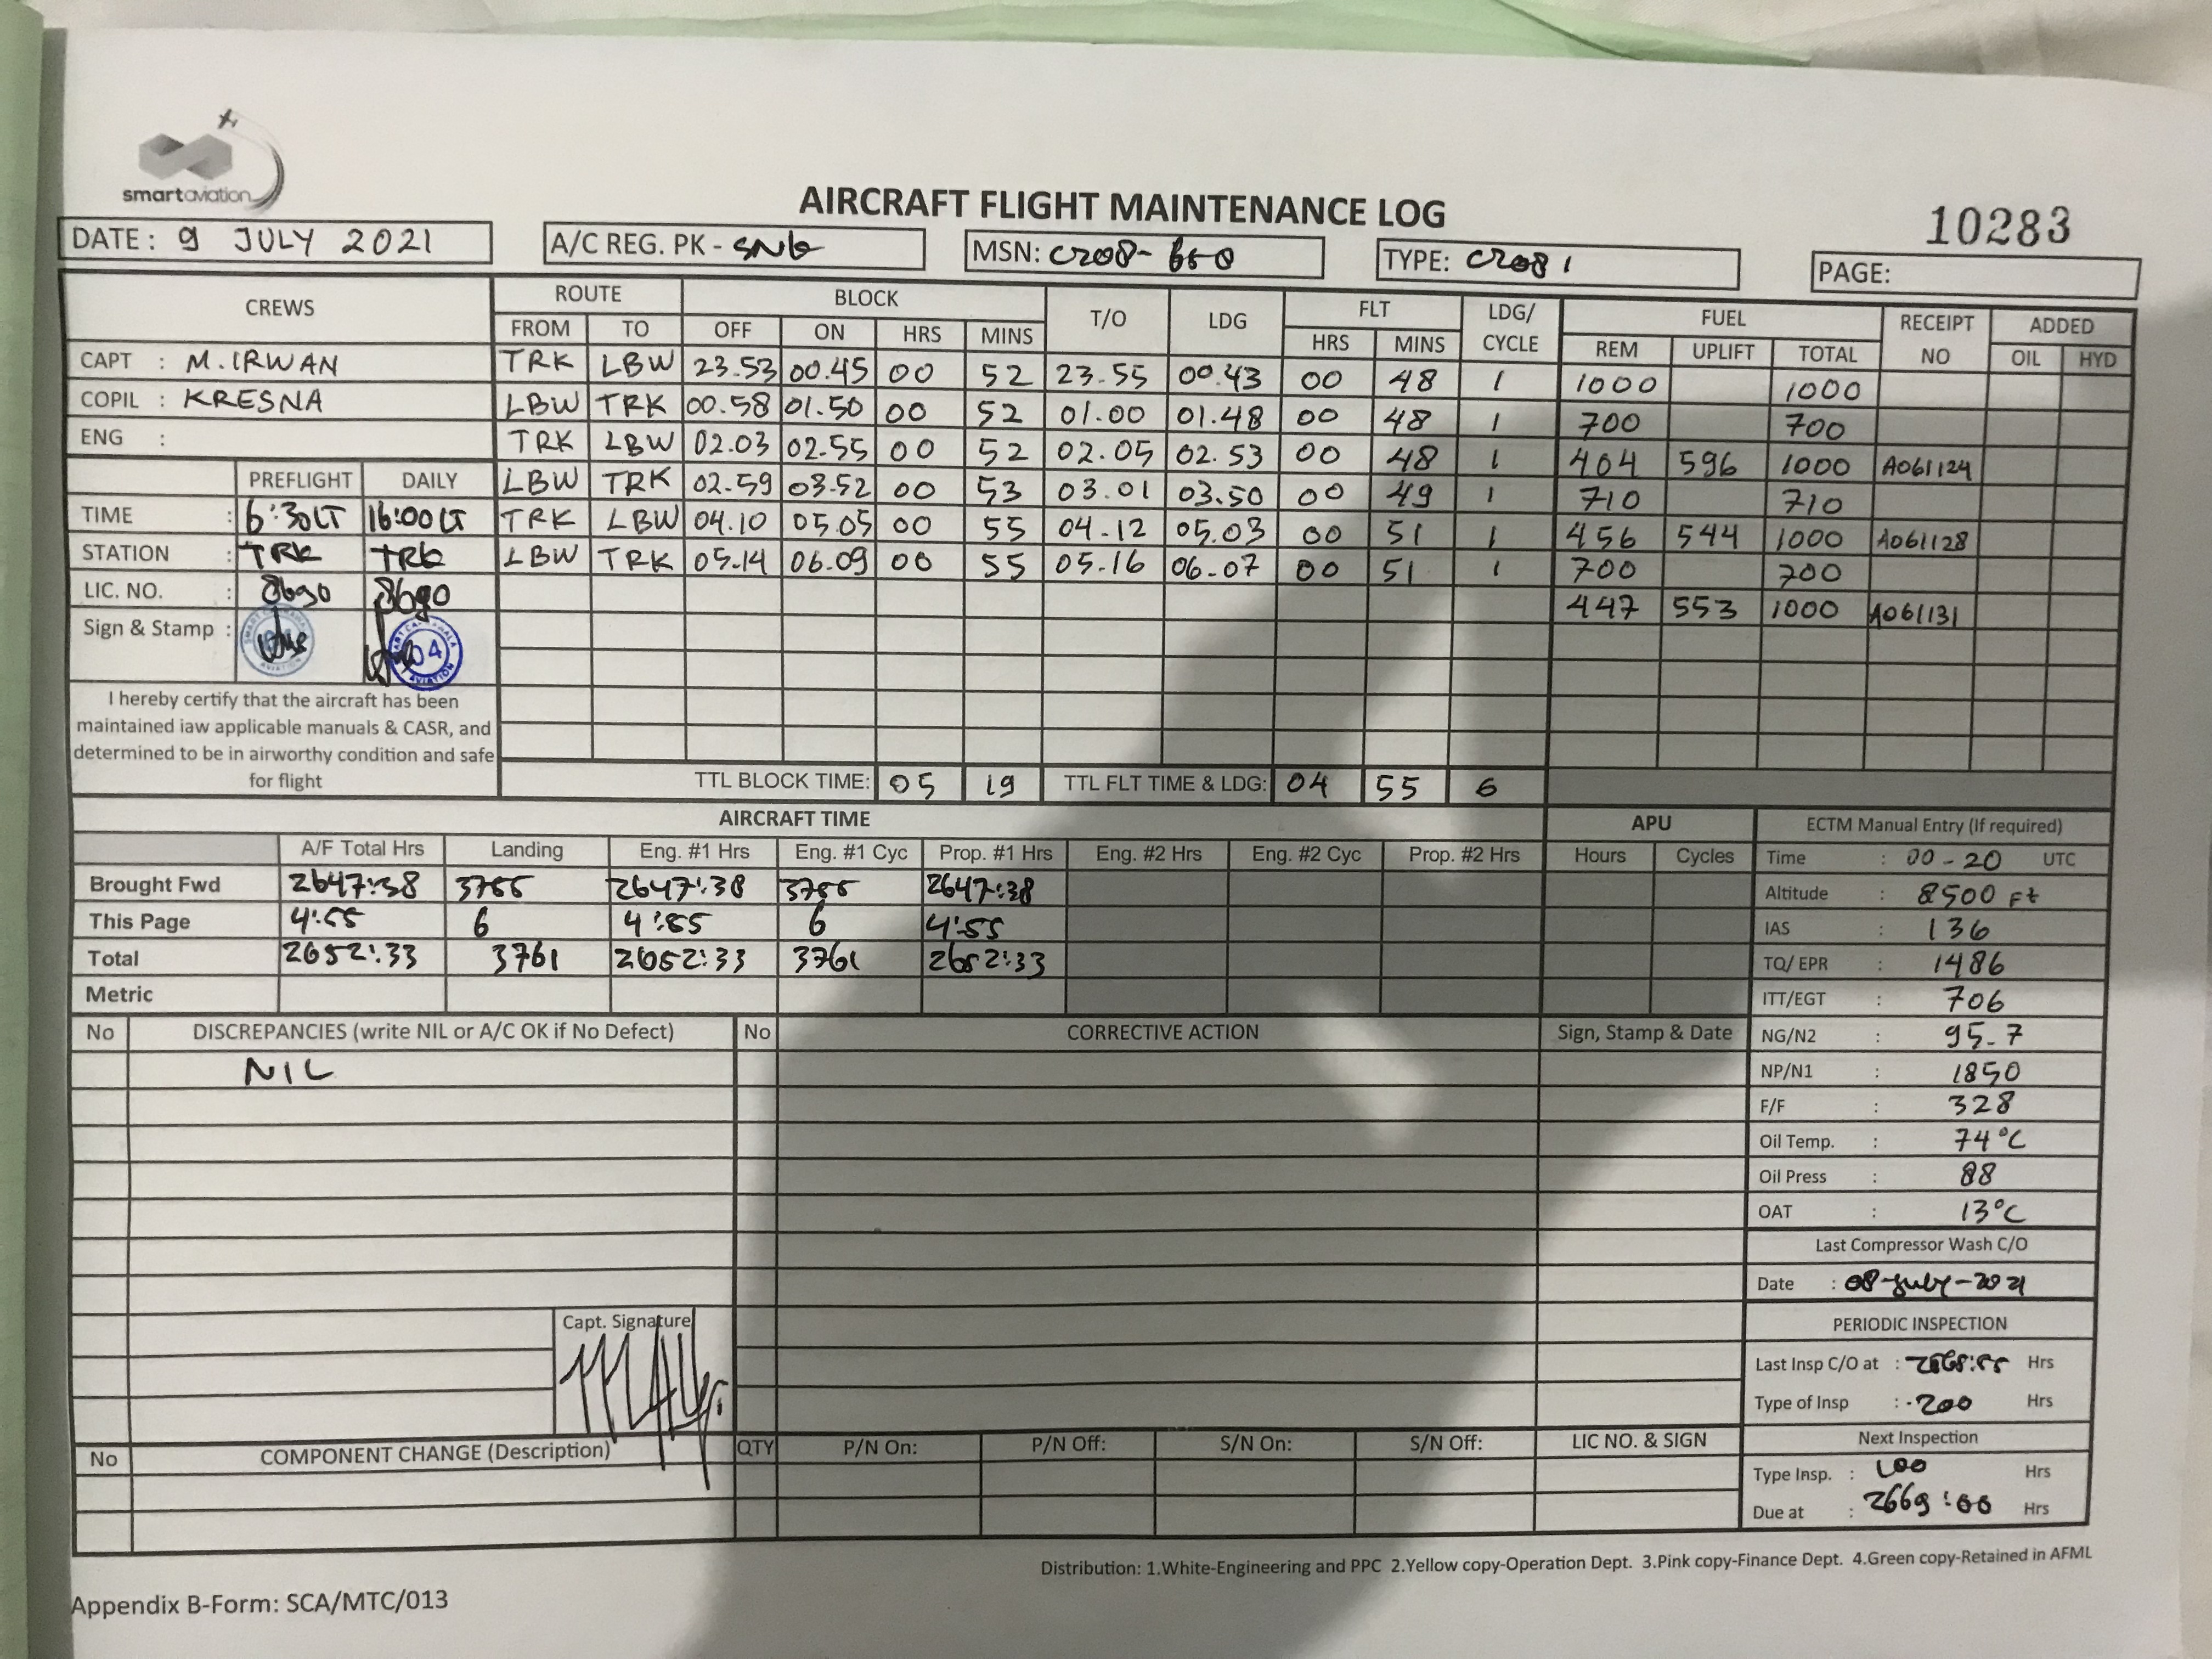 smartaviation
AIRCRAFT FLIGHT MAINTENANCE LOG
10283
DATE : 9 JULY 2021 A/C REG. PK - SNG MSN: C208- 650 TYPE: C208 PAGE:
CREWS ROUTE BLOCK T/O LDG FLT LDG/ CYCLE FUEL RECEIPT NO ADDED
FROM TO OFF ON HRS MINS HRS MINS REM UPLIFT TOTAL OIL HYD
CAPT : M. IRWAN TRK LBW 23.53 00.45 00 52 23.55 00.43 00 48 1 1000 1000
COPIL : KRESNA LBW TRK 00.58 01.50 00 52 01.00 01.48 00 48 1 700 700
ENG : TRK LBW 02.03 02.55 00 52 02.05 02.53 00 48 1 404 596 1000 A061124
PREFLIGHT DAILY LBW TRK 02.59 03.52 00 53 03.01 03.50 00 49 1 710 710
TIME : 6:30LT 16:00LT TRK LBW 04.10 05.05 00 55 04.12 05.03 00 51 1 456 544 1000 A061128
STATION : TRK TRK LBW TRK 05.14 06.09 00 55 05.16 06.07 00 51 1 700 700
LIC. NO. : 8690 8690 447 553 1000 A061131
Sign & Stamp : 04 AVIATION
I hereby certify that the aircraft has been
maintained iaw applicable manuals & CASR, and
determined to be in airworthy condition and safe
for flight
TTL BLOCK TIME: 05 19 TTL FLT TIME & LDG: 04 55 6
AIRCRAFT TIME APU ECTM Manual Entry (If required)
A/F Total Hrs Landing Eng. #1 Hrs Eng. #1 Cyc Prop. #1 Hrs Eng. #2 Hrs Eng. #2 Cyc Prop. #2 Hrs Hours Cycles Time : 00-20 UTC
Brought Fwd 2647:38 3755 2647:38 3755 2647:38 Altitude : 8500 Ft
This Page 4:55 6 4:55 6 4:55 IAS : 136
Total 2652:33 3761 2652:33 3761 2652:33 TQ/ EPR : 1486
Metric ITT/EGT : 706
No DISCREPANCIES (write NIL or A/C OK if No Defect) No CORRECTIVE ACTION Sign, Stamp & Date NG/N2 : 95.7
NIL NP/N1 : 1850
F/F : 328
Oil Temp. : 74°C
Oil Press : 88
OAT : 13°C
Last Compressor Wash C/O
Date : 08-July-2021
Capt. Signature PERIODIC INSPECTION
Last Insp C/O at : Hrs
Type of Insp : 200 Hrs
No COMPONENT CHANGE (Description) QTY P/N On: P/N Off: S/N On: S/N Off: LIC NO. & SIGN Next Inspection
Type Insp. : 100 Hrs
Due at : 2669:00 Hrs
Distribution: 1.White-Engineering and PPC 2.Yellow copy-Operation Dept. 3.Pink copy-Finance Dept. 4.Green copy-Retained in AFML
Appendix B-Form: SCA/MTC/013